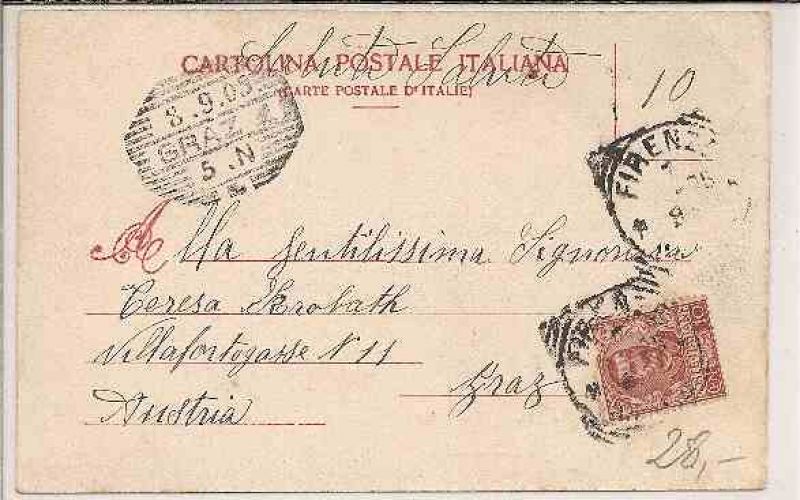 Saluti Saluti
CARTOLINA POSTALE ITALIANA
(CARTE POSTALE D'ITALIE)
10
8.9.05
GRAZ
5.N
FIRENZE
Alla gentilissima Signorina
Teresa Skrobath
Villefortegasse N 11
Graz
Austria
28,-